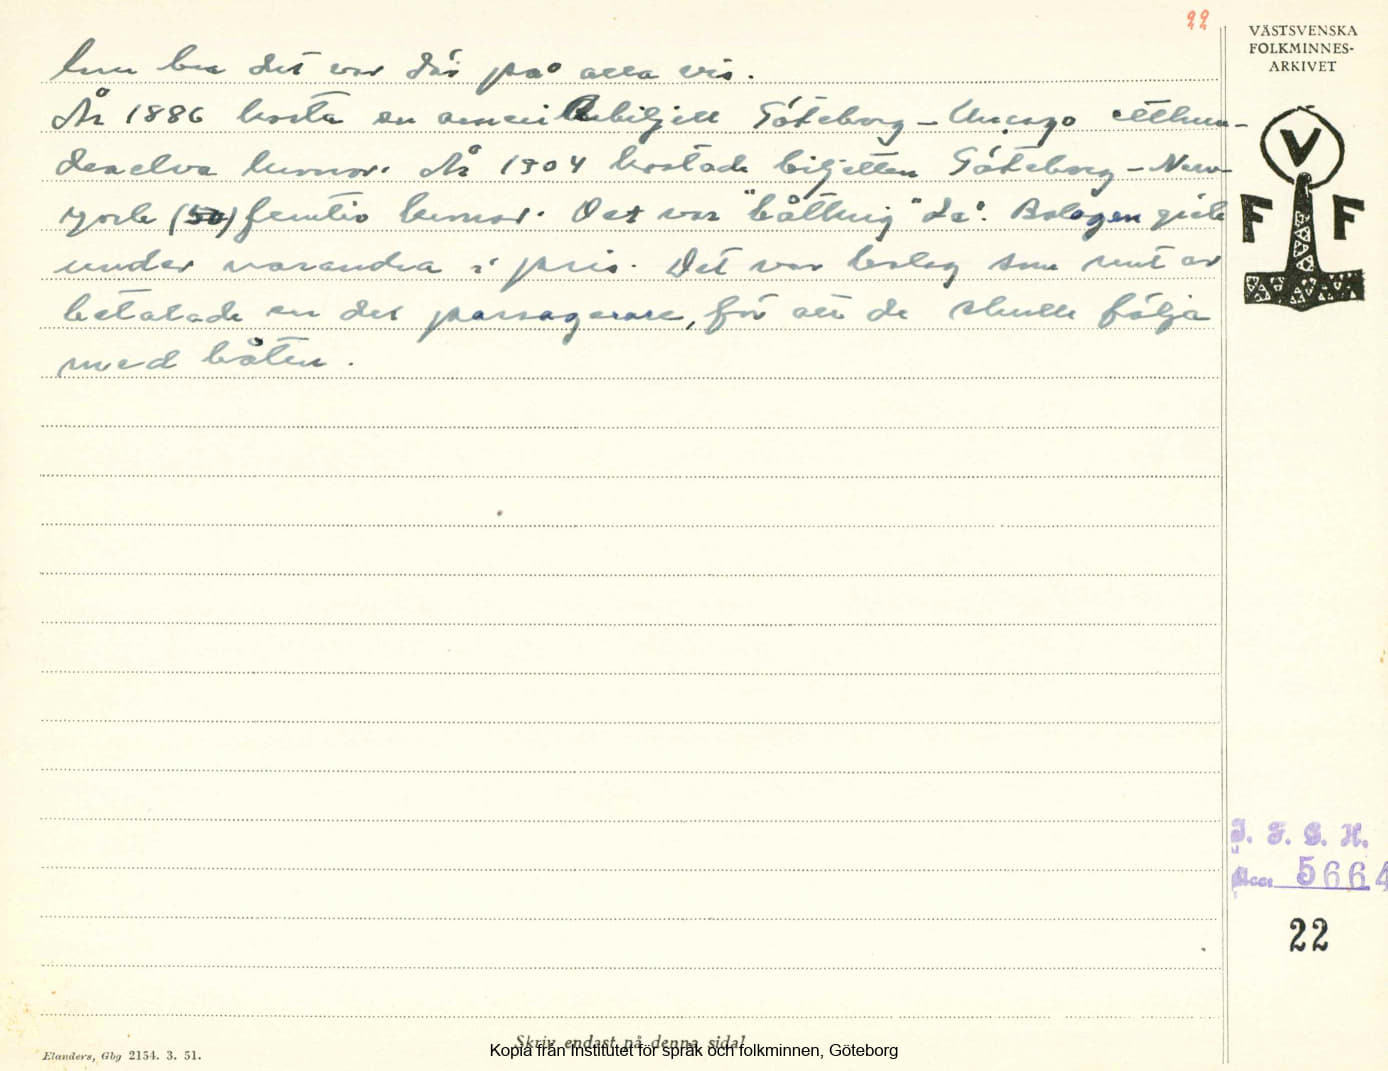 22
VÄSTSVENSKA
FOLKMINNES-
ARKIVET
hur bra det var där på alla vis.
År 1886 kosta en amerikabiljett Göteborg – Chicago etthun-
draelva kronor. År 1904 kostade biljetten Göteborg – New-
york (50) femtio kronor. Det var "båtkrig" då. Bolagen gick
under varandra i pris. Det var bolag som rent av
betalade en del passagerare, för att de skulle följa
med båten.
V
F F
I. F. G. H.
Acc. 5664
22
Skriv endast på denna sida!
Elanders, Gbg 2154. 3. 51.
Kopia från Institutet för språk och folkminnen, Göteborg